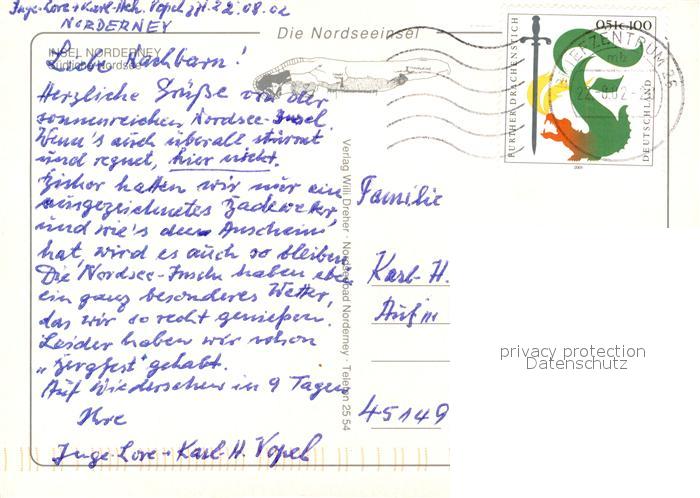 Inge-Lore + Karl-Hch. Vopel z.Zt. 22.08.02
NORDERNEY
Die Nordseeinsel
INSEL NORDERNEY
Südliche Nordsee
Liebe Nachbarn!
Herzliche Grüße von der
sonnenreichen Nordsee-Insel.
Wenn's auch überall stürmt
und regnet, hier nicht.
Bisher hatten wir nur ein
ausgezeichnetes Badewetter,
und wie's den Anschein
hat, wird es auch so bleiben.
Die Nordsee-Inseln haben eben
ein ganz besonderes Wetter,
das wir so recht genießen.
Leider haben wir schon
„Bergfest" gehabt.
Auf Wiedersehen in 9 Tagen
Ihre
Inge-Lore + Karl-H. Vopel
Verlag Willi Dreher · Nordseebad Norderney · Telefon 25 54
FURTHER DRACHENSTICH
0,51€ 100
DEUTSCHLAND
2001
BRIEFZENTRUM 26
mb
22.-8.02
Familie
Karl-H.
Auf m
45149
privacy protection
Datenschutz